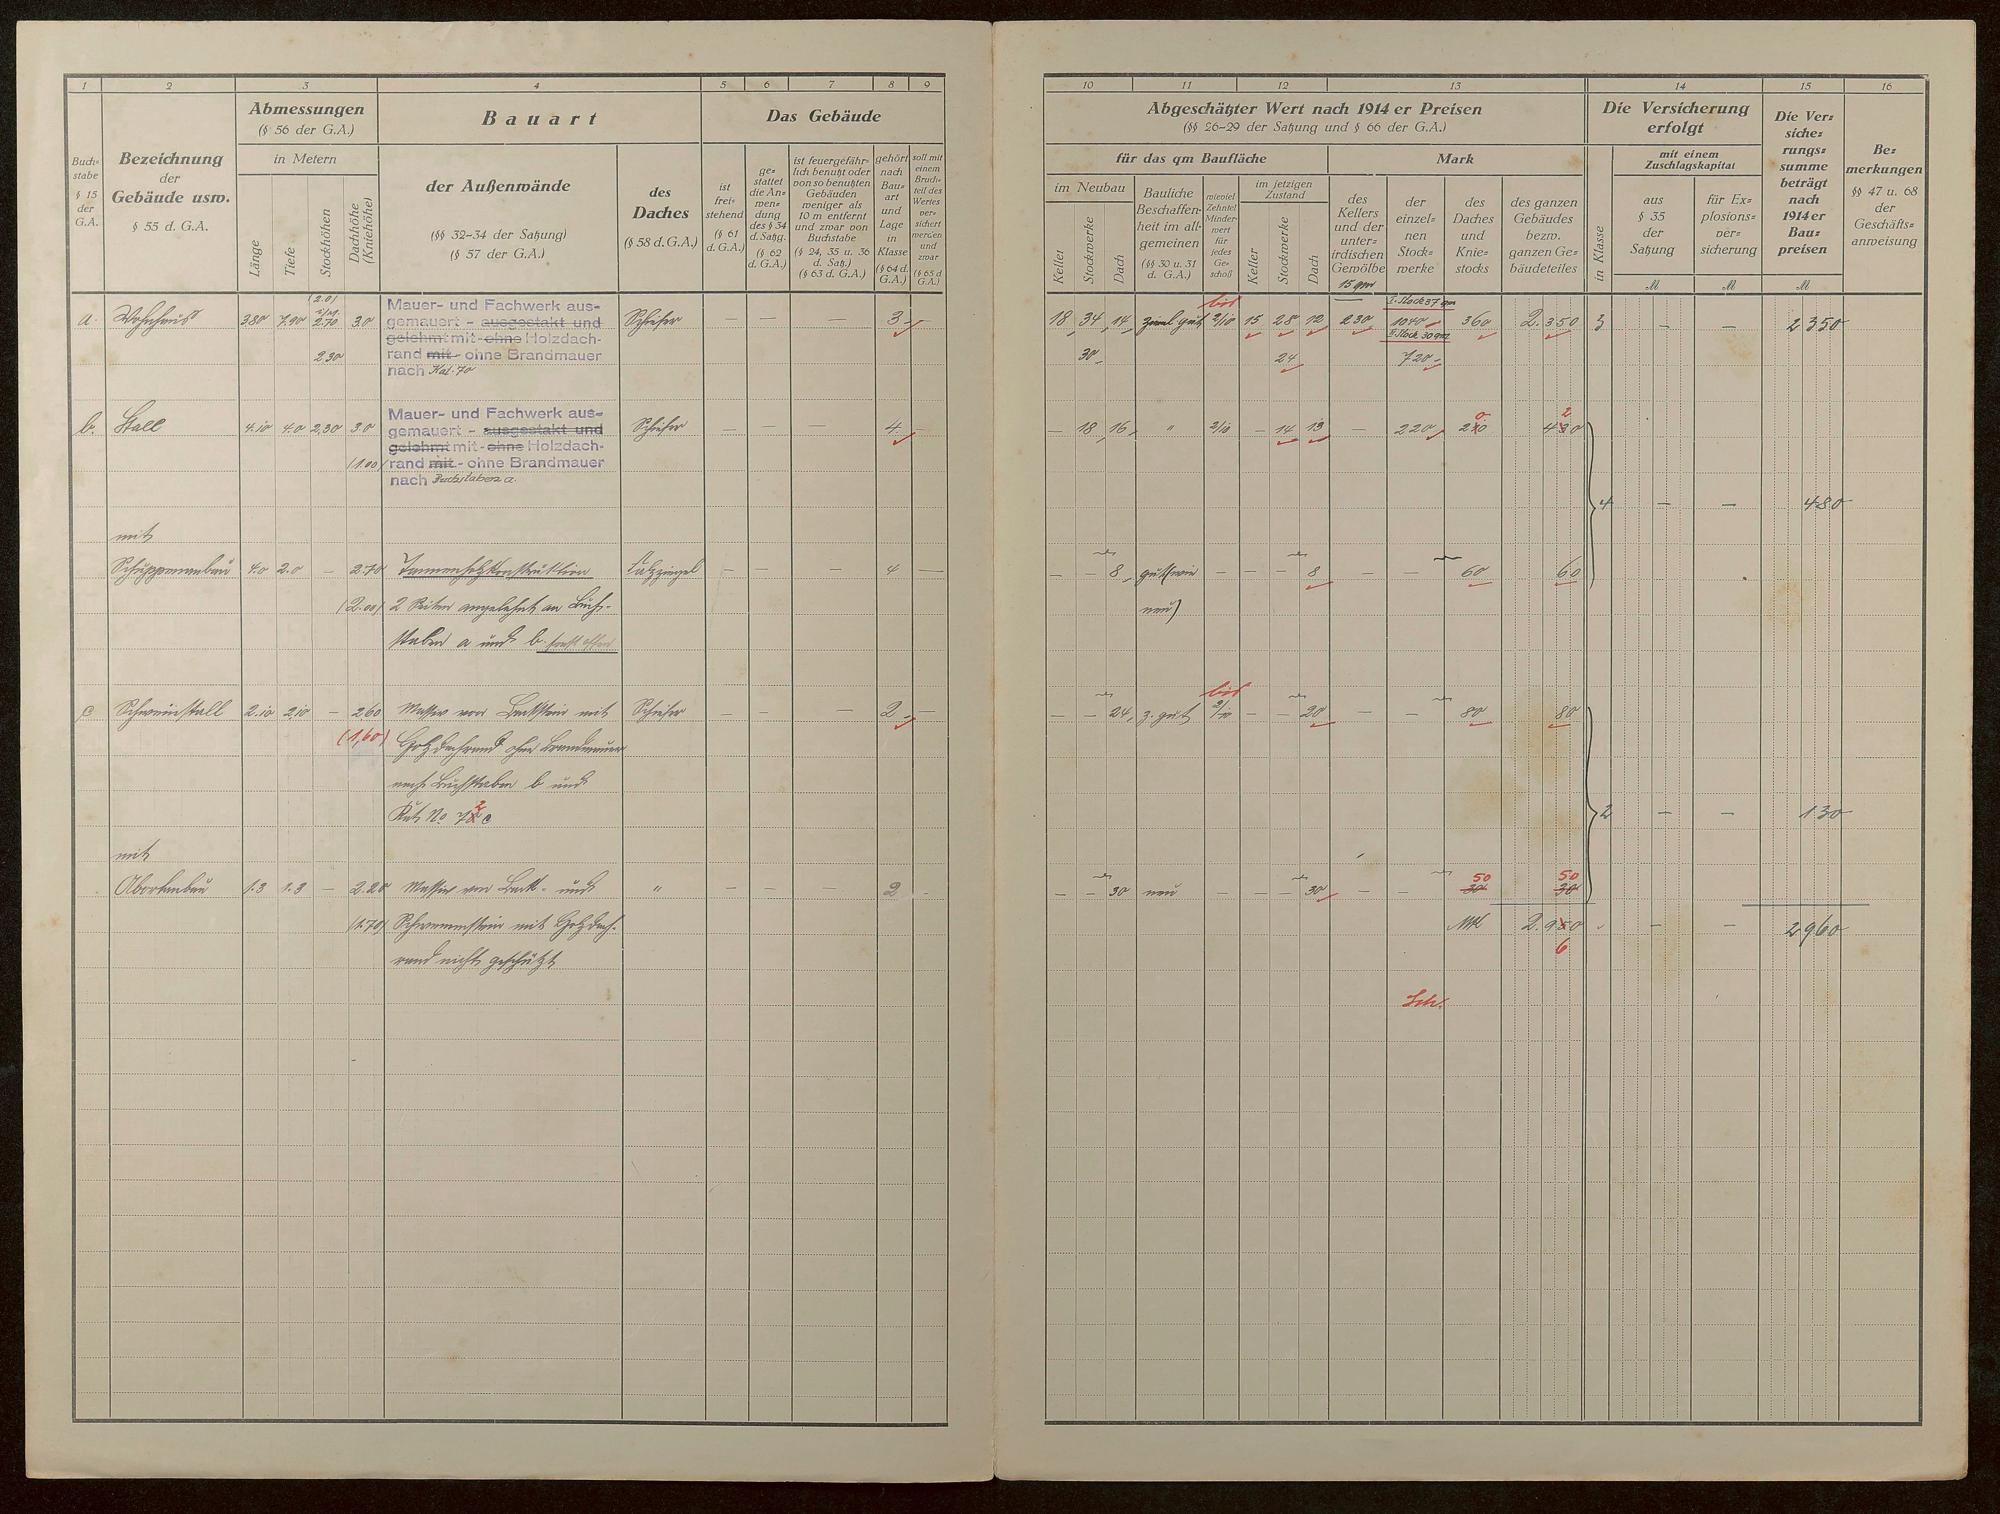 1 2 3 4 5 6 7 8 9
Buch=
stabe
§ 15
der
G.A.
Bezeichnung
der
Gebäude usw.
§ 55 d. G.A.
Abmessungen
(§ 56 der G.A.)
in Metern
Länge
Tiefe
Stockhöhen
Dachhöhe
(Kniehöhe)
Bauart
der Außenwände
(§§ 32-34 der Satzung)
(§ 57 der G.A.)
des
Daches
(§ 58 d. G.A.)
Das Gebäude
ist
frei=
stehend
(§ 61
d. G.A.)
ge=
stattet
die An=
wen=
dung
des § 34
d. Satzg.
(§ 62
d. G.A.)
ist feuergefähr=
lich benutzt oder
von so benutzten
Gebäuden
weniger als
10 m entfernt
und zwar von
Buchstabe
(§ 24, 35 u. 36
d. Satz.)
(§ 63 d. G.A.)
gehört
nach
Bau=
art
und
Lage
in
Klasse
(§ 64 d.
G.A.)
soll mit
einem
Bruch=
teil des
Wertes
ver=
sichert
werden
und
zwar
(§ 65 d.
G.A.)
a. Wohnhaus 3.80 7.90 2.70 3.0
(2.0)
2.30
Mauer- und Fachwerk aus-
gemauert - ausgestakt und
gelehmt mit - ohne Holzdach-
rand mit - ohne Brandmauer
nach Kat. 70
Schiefer — — — 3 —
b. Stall 4.10 4.0 2.30 3.0
(1.00)
Mauer- und Fachwerk aus-
gemauert - ausgestakt und
gelehmt mit - ohne Holzdach-
rand mit - ohne Brandmauer
nach Buchstaben a.
Schiefer — — — 4 —
mit
Schuppenanbau 4.0 2.0 — 2.70 Tannenholzkonstruktion Falzziegel — — — 4 —
(2.00) 2 Seiten angelehnt an Buch-
staben a und b sonst offen
c Schweinestall 2.10 2.10 — 2.60 Massiv von Backstein mit Schiefer — — — 2 —
(1,60) Holzdachrand ohne Brandmauer
nach Buchstaben b und
Kat. No 72 c
mit
Abortanbau 1.3 1.3 — 2.20 Massiv von Back- und " — — — 2 -
(1.70) Schwemmstein mit Holzdach-
rand nicht geschützt
10 11 12 13 14 15 16
Abgeschätzter Wert nach 1914 er Preisen
(§§ 26-29 der Satzung und § 66 der G.A.)
für das qm Baufläche
Mark
im Neubau
Keller
Stockwerke
Dach
Bauliche
Beschaffen=
heit im all=
gemeinen
(§§ 30 u. 31
d. G.A.)
wieviel
Zehntel
Minder=
wert
für
jedes
Ge=
schoß
im jetzigen
Zustand
Keller
Stockwerke
Dach
des
Kellers
und der
unter=
irdischen
Gewölbe
der
einzel=
nen
Stock=
werke
des
Daches
und
Knie=
stocks
des ganzen
Gebäudes
bezw.
ganzen Ge=
bäudeteiles
Die Versicherung
erfolgt
in Klasse
mit einem
Zuschlagskapital
aus
§ 35
der
Satzung
für Ex=
plosions=
ver=
sicherung
M M M
Die Ver=
siche=
rungs=
summe
beträgt
nach
1914 er
Bau=
preisen
Be=
merkungen
§§ 47 u. 68
der
Geschäfts=
anweisung
15 qm I. Stock 37 qm
bis
18 34 14 ziml. gut 2/10 15 28 12 230 1040 360 2.350 3 — — 2350
II. Stock 30 qm
30 24 720
— 18 16 " 2/10 — 14 13 — 220 230 0 430 2
4 — — 480
— — 8 gut (wie — — — 8 — 60 60
neu)
bis
— — 24 z. gut 2/10 — — 20 — — 80 80
2 — — 130
— — 30 neu — — 30 — — 50 50
30 30
Mk 2.950 — — 2960
6
Sch.